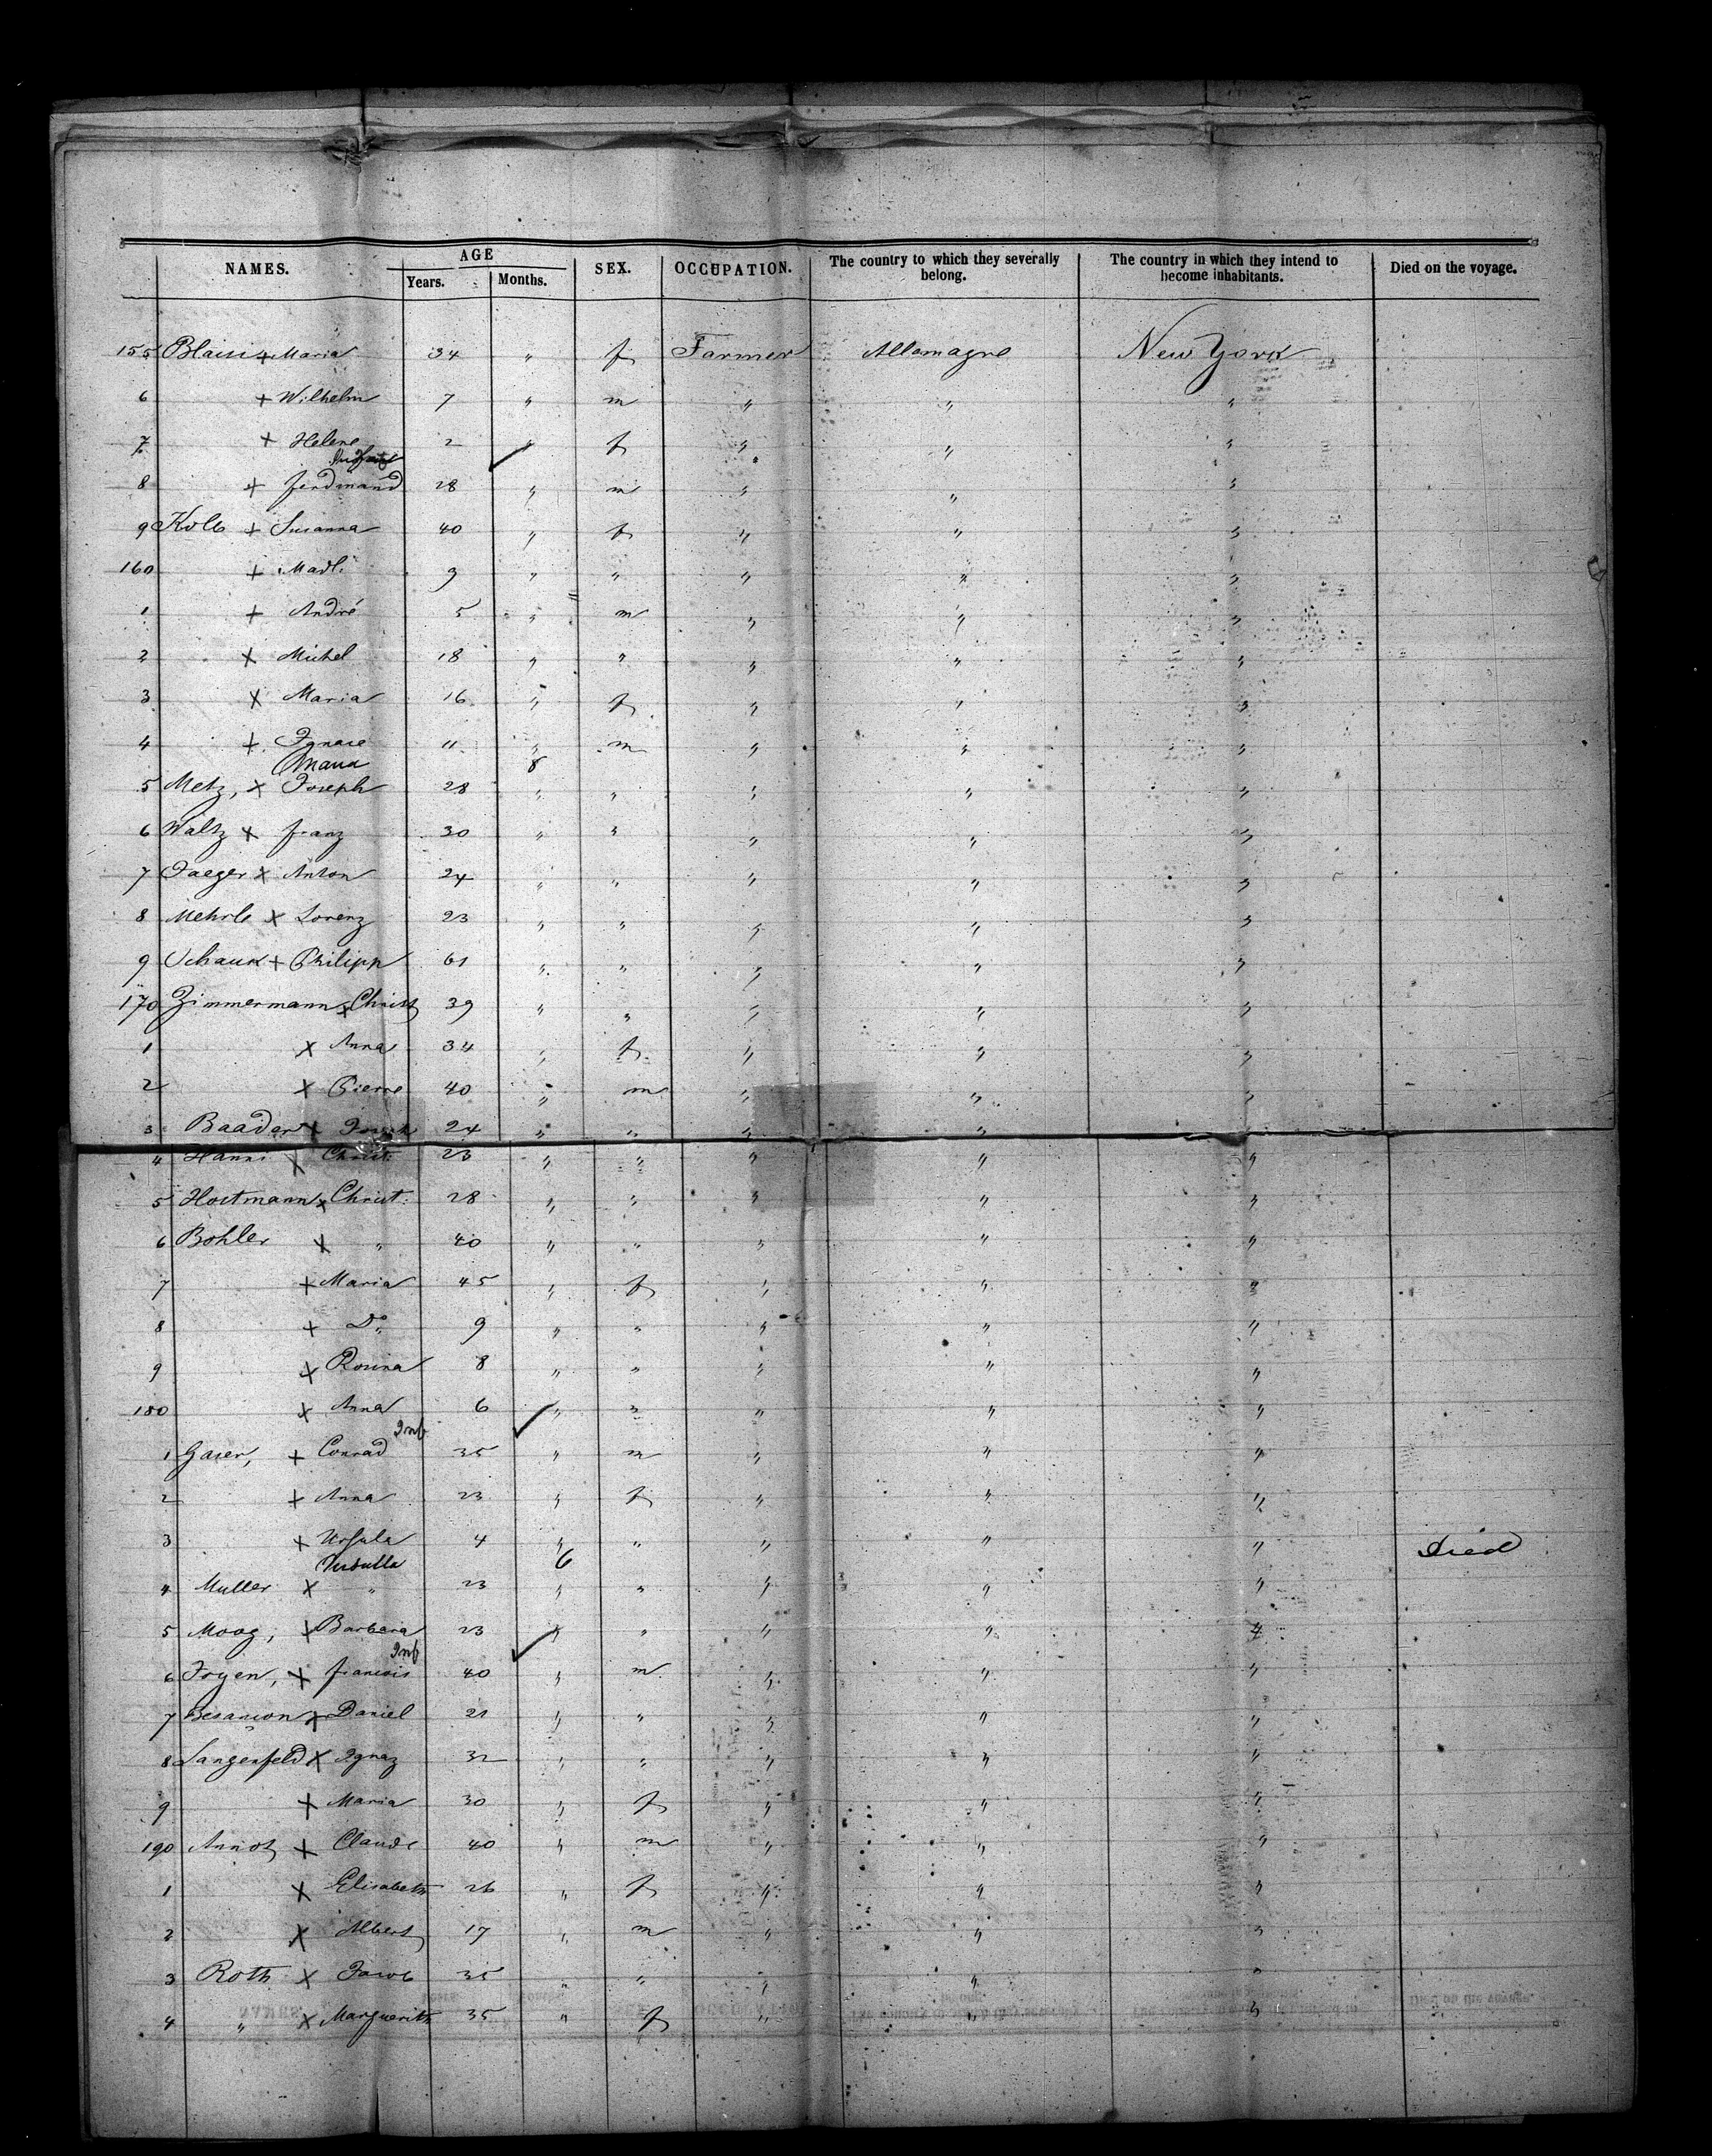 NAMES. AGE Years. Months. SEX. OCCUPATION. The country to which they severally belong. The country in which they intend to become inhabitants. Died on the voyage.
155 Blaisi + Maria 34 " f Farmer Allemagne New York
6 + Wilhelm 7 " m " " "
7 + Helene 2 " f " " "
8 + ferdinand 28 " m " " "
9 Kolb + Susanna 40 " f " " "
160 + Madl. 9 " " " " "
1 + André 5 " m " " "
2 X Michel 18 " " " " "
3 X Maria 16 " f " " "
4 + Ignace 11 " m " " "
Maria 8
5 Metz, X Joseph 28 " " " " "
6 Waltz X franz 30 " " " " "
7 Jaeger X Anton 24 " " " " "
8 Mehrle X Lorenz 23 " " " " "
9 Schauk + Philipp 61 " " " " "
170 Zimmermann X Christ 39 " " " " "
1 X Anna 34 " f " " "
2 X Pierre 40 " m " " "
3 Baader X Joseph 24 " " " " "
4 Hanni X Christ. 23 " " " " "
5 Hostmann X Christ. 28 " " " " "
6 Bohler X " 40 " " " " "
7 + Maria 45 " f " " "
8 + Do 9 " " " " "
9 X Rosina 8 " " " " "
180 X Anna 6 " " " " "
Inf
1 Gaier, + Conrad 35 " m " " "
2 + Anna 23 " f " " "
3 X Ursula 4 " " " " " Died
Ursulla 6
4 Muller X " 23 " " " " "
5 Moog, X Barbara 23 " " " " "
Inf
6 Foyen, X francois 40 " m " " "
7 Besancon X Daniel 21 " " " " "
8 Langenfeld X Ignaz 32 " " " " "
9 X Maria 30 " f " " "
190 Annot X Claude 40 " m " " "
1 X Elisabeth 26 " f " " "
2 X Albert 17 " m " " "
3 Roth X Jacob 35 " " " " "
4 " X Marguerith 35 " f " " "